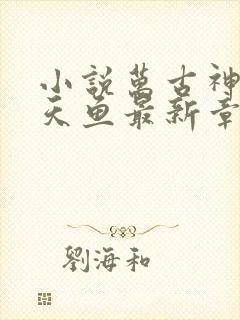 小說萬古神
天魚最新章
劉海和